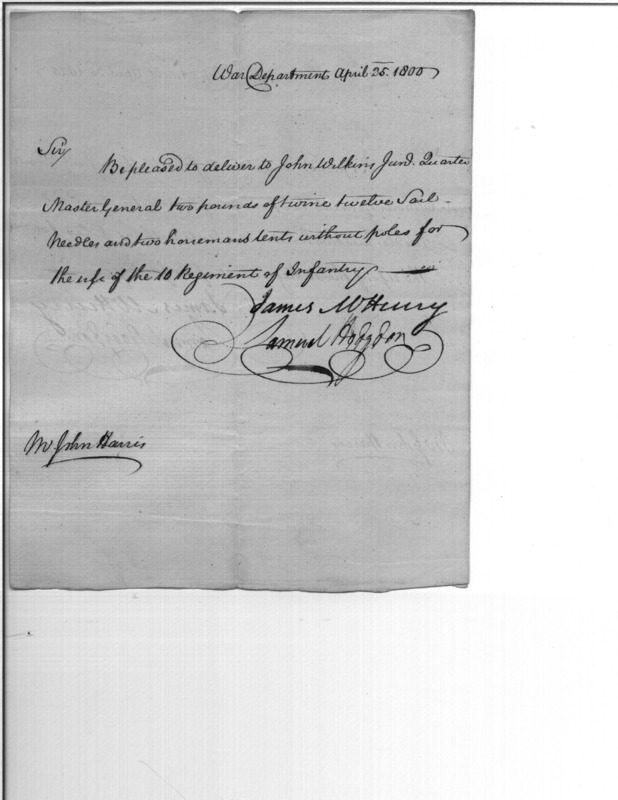 War Department April 25. 1800
Sir
Be pleased to deliver to John Wilkins Junr. Quarter
Master General two pounds of twine twelve Sail
Needles and two horsemans tents without poles for
the use of the 10 Regiment of Infantry
James McHenry
Samuel Hodgdon
Mr John Harris